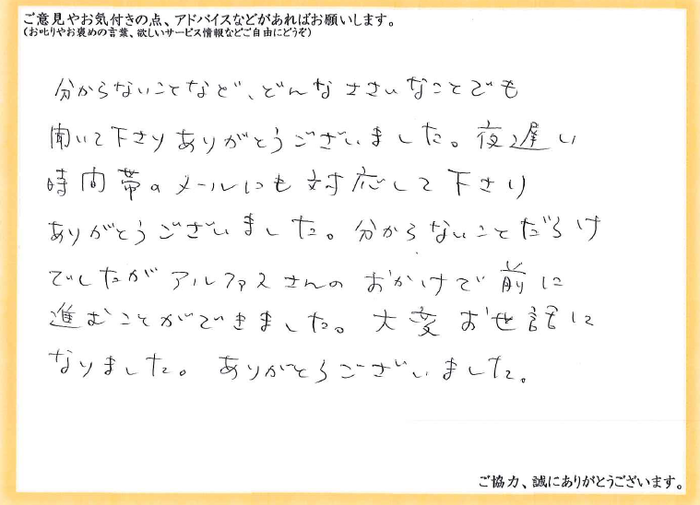 ご意見やお気付きの点、アドバイスなどがあればお願いします。
(お叱りやお褒めの言葉、欲しいサービス情報などご自由にどうぞ)
分からないことなど、どんなささいなことでも
聞いて下さりありがとうございました。夜遅い
時間帯のメールにも対応して下さり
ありがとうございました。分からないことだらけ
でしたがアルファスさんのおかけで前に
進むことができました。大変お世話に
なりました。ありがとうございました。
ご協力、誠にありがとうございます。